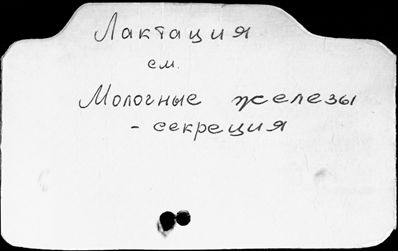 Лактация
см.
Молочные железы
- секреция